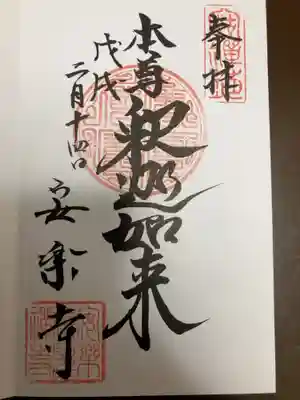 奉拝
本尊
釈迦如来
戊戌
二月十四日
安楽寺